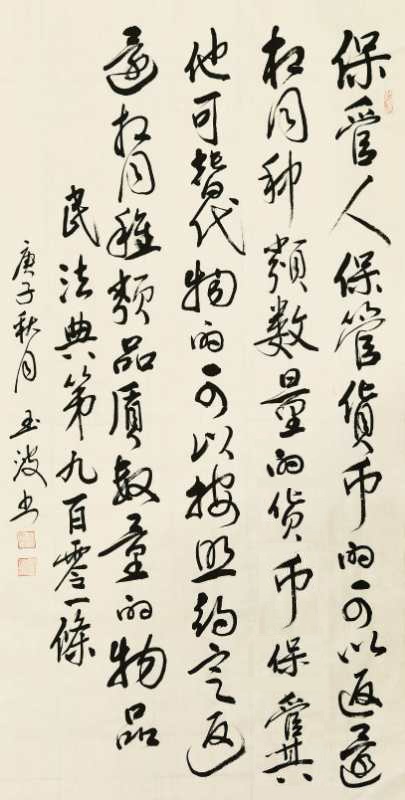 保管人保管货币的可以返還
相同种類数量的货币保管其
他可替代物的可以按照約定返
還相同種類品质數量的物品
民法典第九百零一條
庚子秋月 玉波书